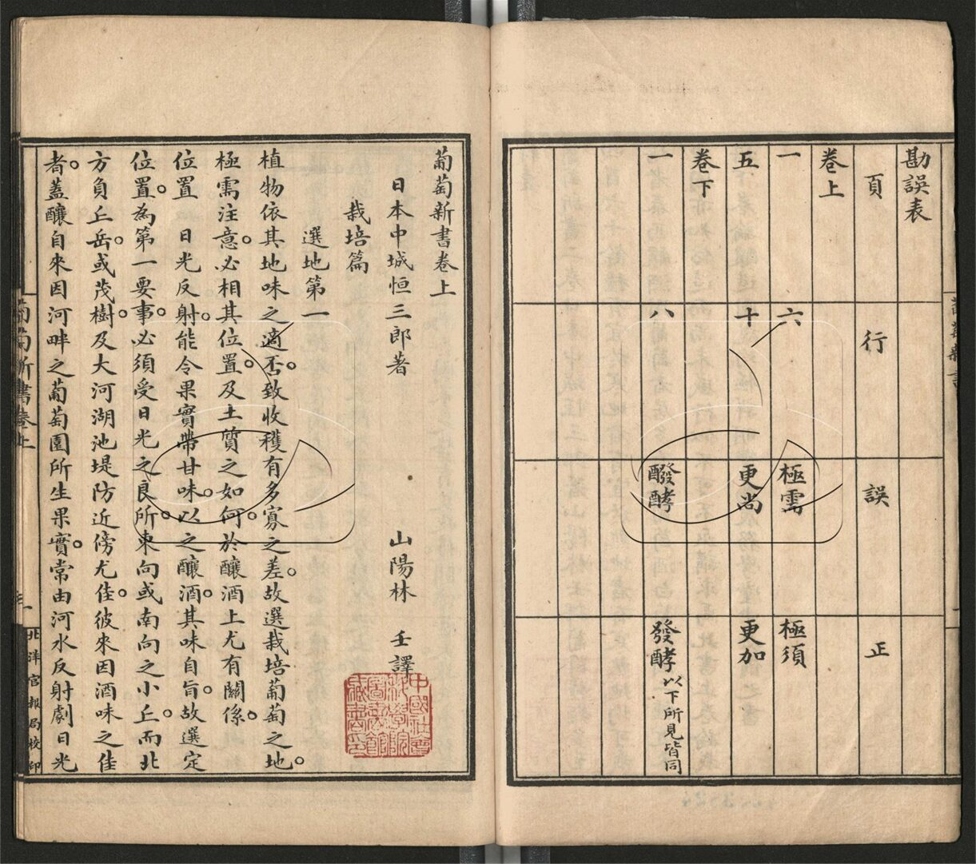 勘誤表
頁 行 誤 正
卷上
一 六 極需 極須
五 十 更尚 更加
卷下
一 八 醱酵 發酵 以下所見皆同
葡萄新書卷上
日本中城恒三郎著 山陽林 壬譯
栽培篇
選地第一
植物依其地味之適否。致收穫有多寡之差。故選栽培葡萄之地。
極需注意。必相其位置。及土質之如何。於釀酒上尤有關係。
位置 日光反射。能令果實帶甘味。以之釀酒。其味自旨。故選定
位置。為第一要事。必須受日光之良所。東向或南向之小丘。而北
方負丘岳。或茂樹。及大河湖池堤防近傍尤佳。彼來因酒味之佳
者。蓋釀自來因河畔之葡萄園所生果實。常由河水反射劇日光
葡萄新書卷上
一
北洋官報局校印